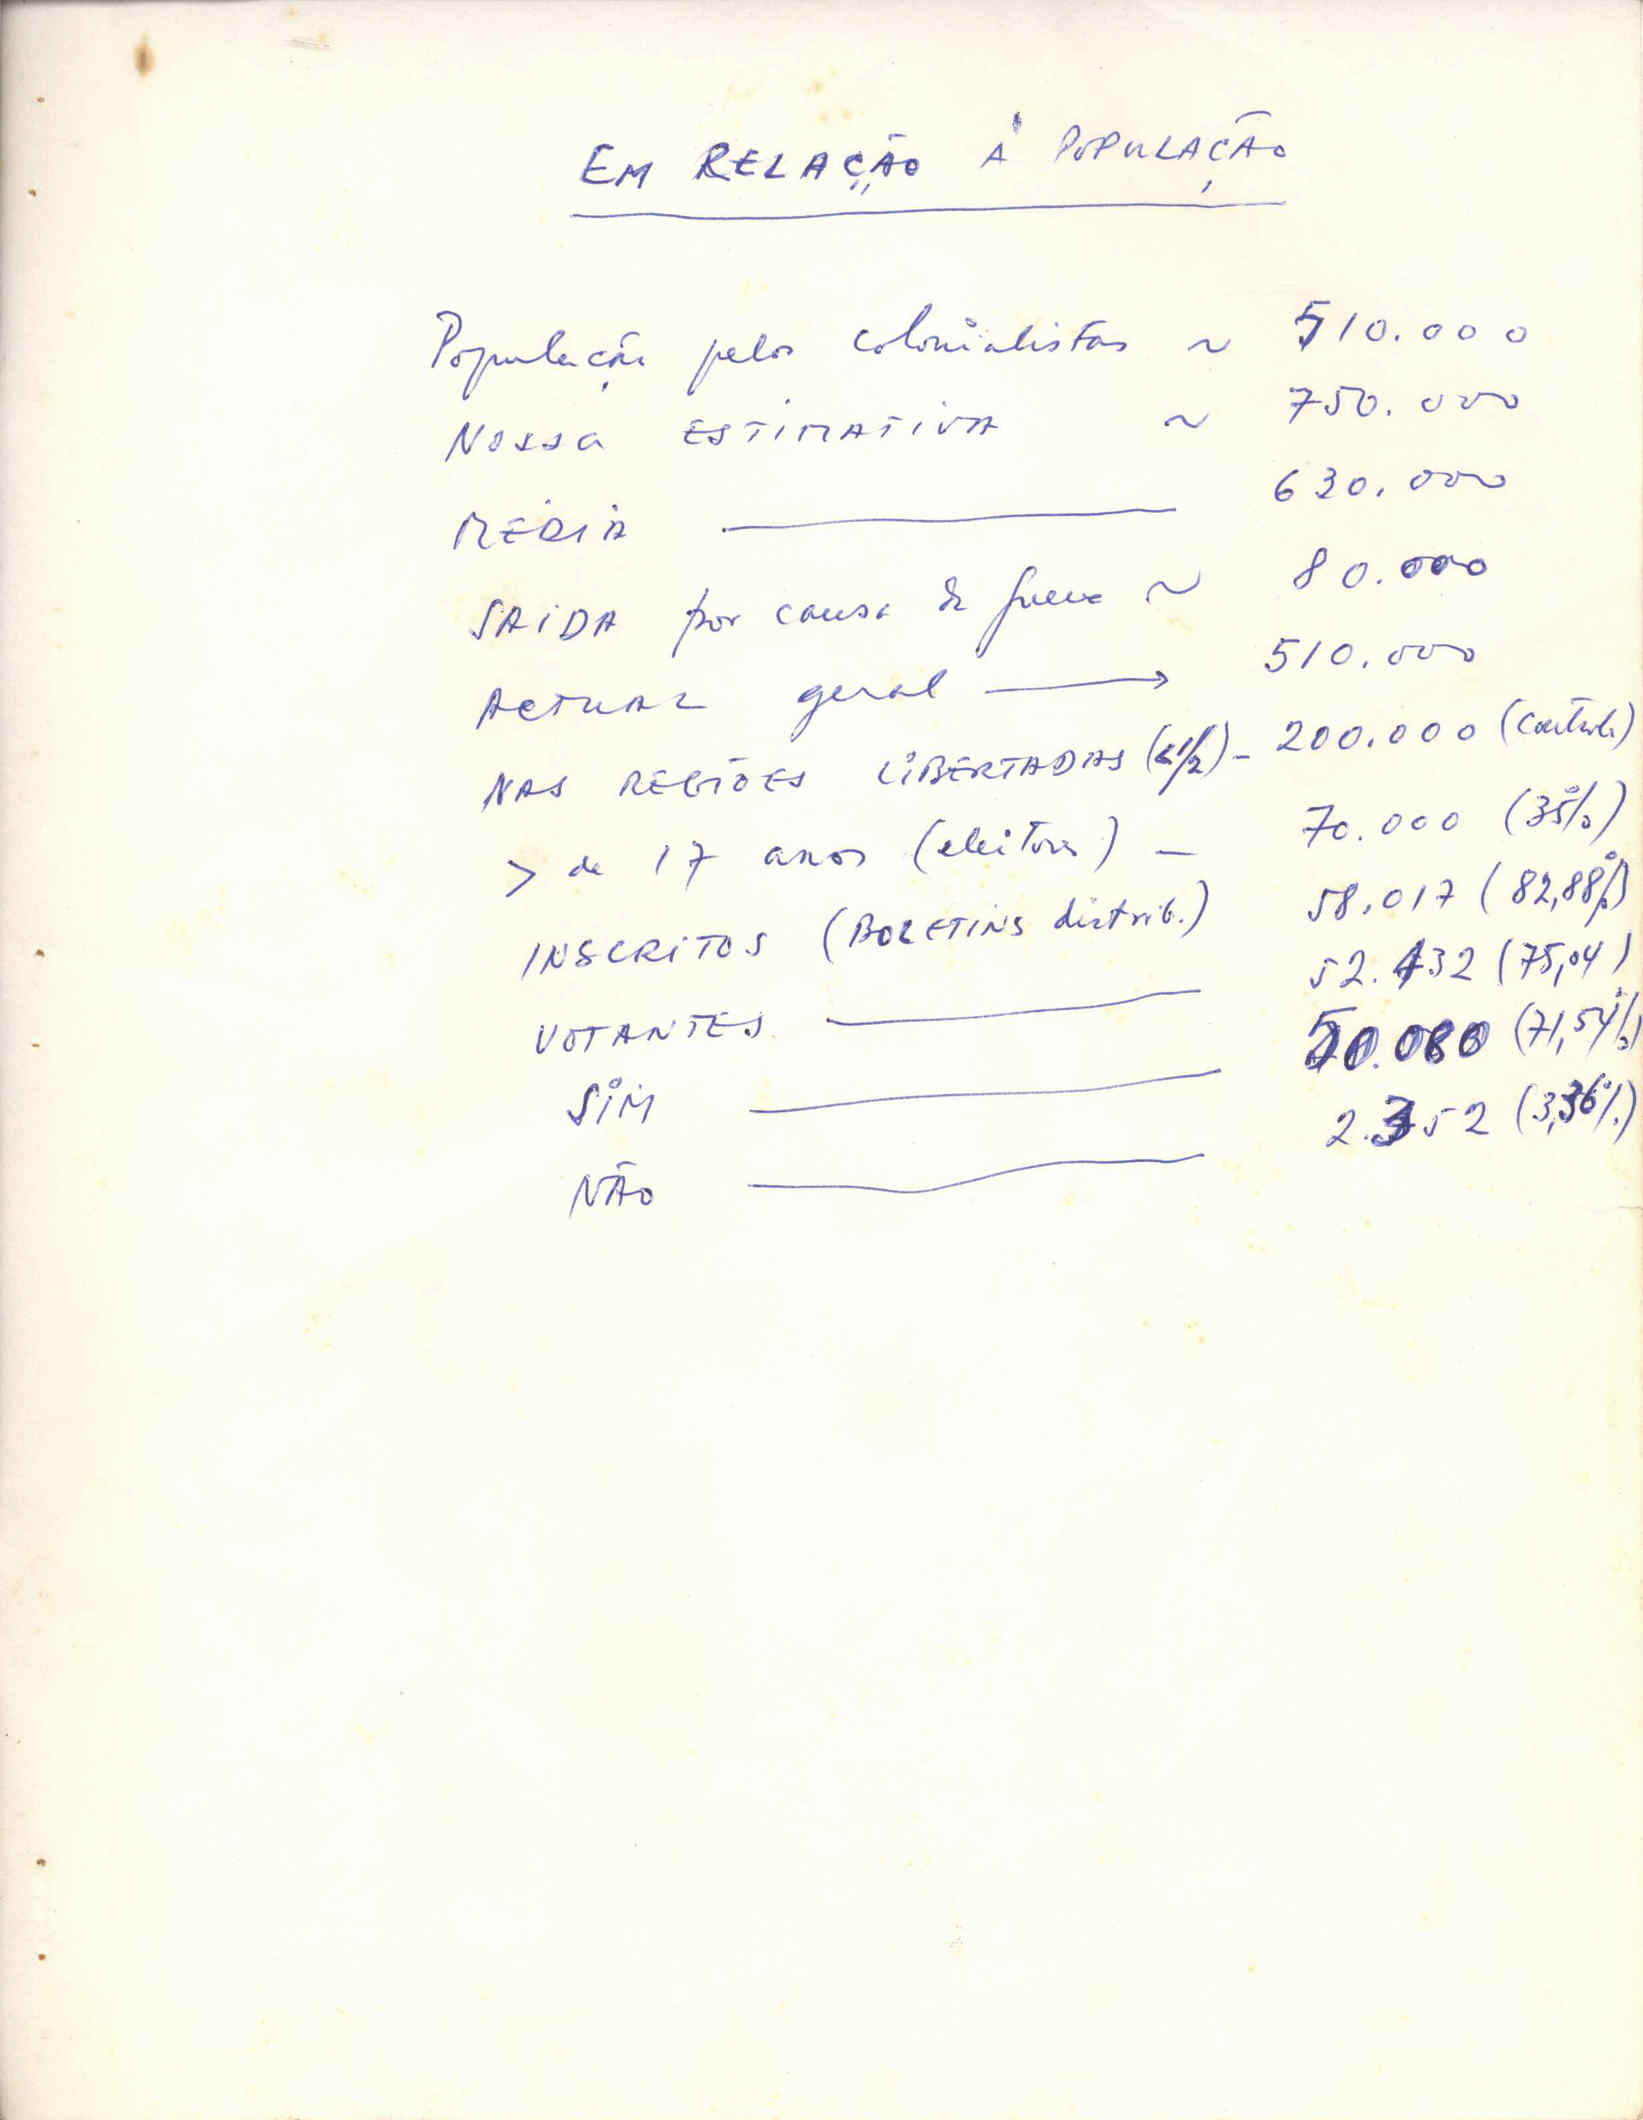 EM RELAÇÃO À POPULAÇÃO
População pelos colonialistas ~ 510.000
Nossa ESTIMATIVA ~ 750.000
MÉDIA — 630.000
SAIDA por causa da guerra ~ 80.000
ACTUAL geral → 510.000
NAS REGIÕES LIBERTADAS (<1/2) - 200.000 (Controle)
> de 17 anos (eleitores) — 70.000 (35%)
INSCRITOS (BOLETINS distrib.) 58.017 (82,88%)
VOTANTES — 52.432 (75,04)
SIM — 50.080 (71,54%)
NÃO — 2.352 (3,36%)